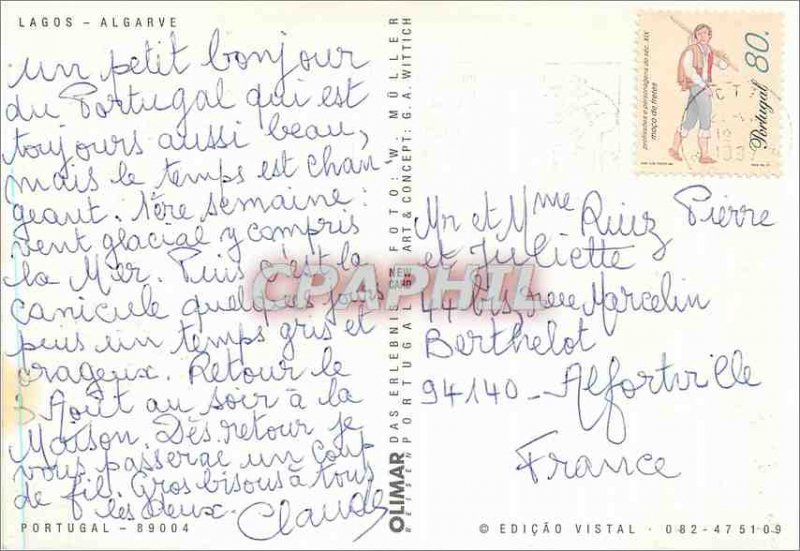 LAGOS – ALGARVE
un petit bonjour
du Portugal qui est
toujours aussi beau,
mais le temps est chan
geant. 1ère semaine :
vent glacial y compris
la Mer. Puis c'est la
canicule quelques jours
puis un temps gris et
orageux. Retour le
3 Août au soir à la
Maison. Dès retour je
vous passerai un coup
de fil. Gros bisous à tous
les deux. Claude
PORTUGAL – 89004
OLIMAR DAS ERLEBNIS FOTO: W. MÜLLER
REISEN PORTUGAL ART & CONCEPT: G.A. WITTICH
NEW CARD
profissões e personagens do séc. XIX
moço de fretes
Portugal 80.
Mr et Mme Ruiz Pierre
et Juliette
44 bis rue Marcelin
Berthelot
94140 - Alfortville
France
© EDIÇÃO VISTAL · 082-475109
CPARHIL